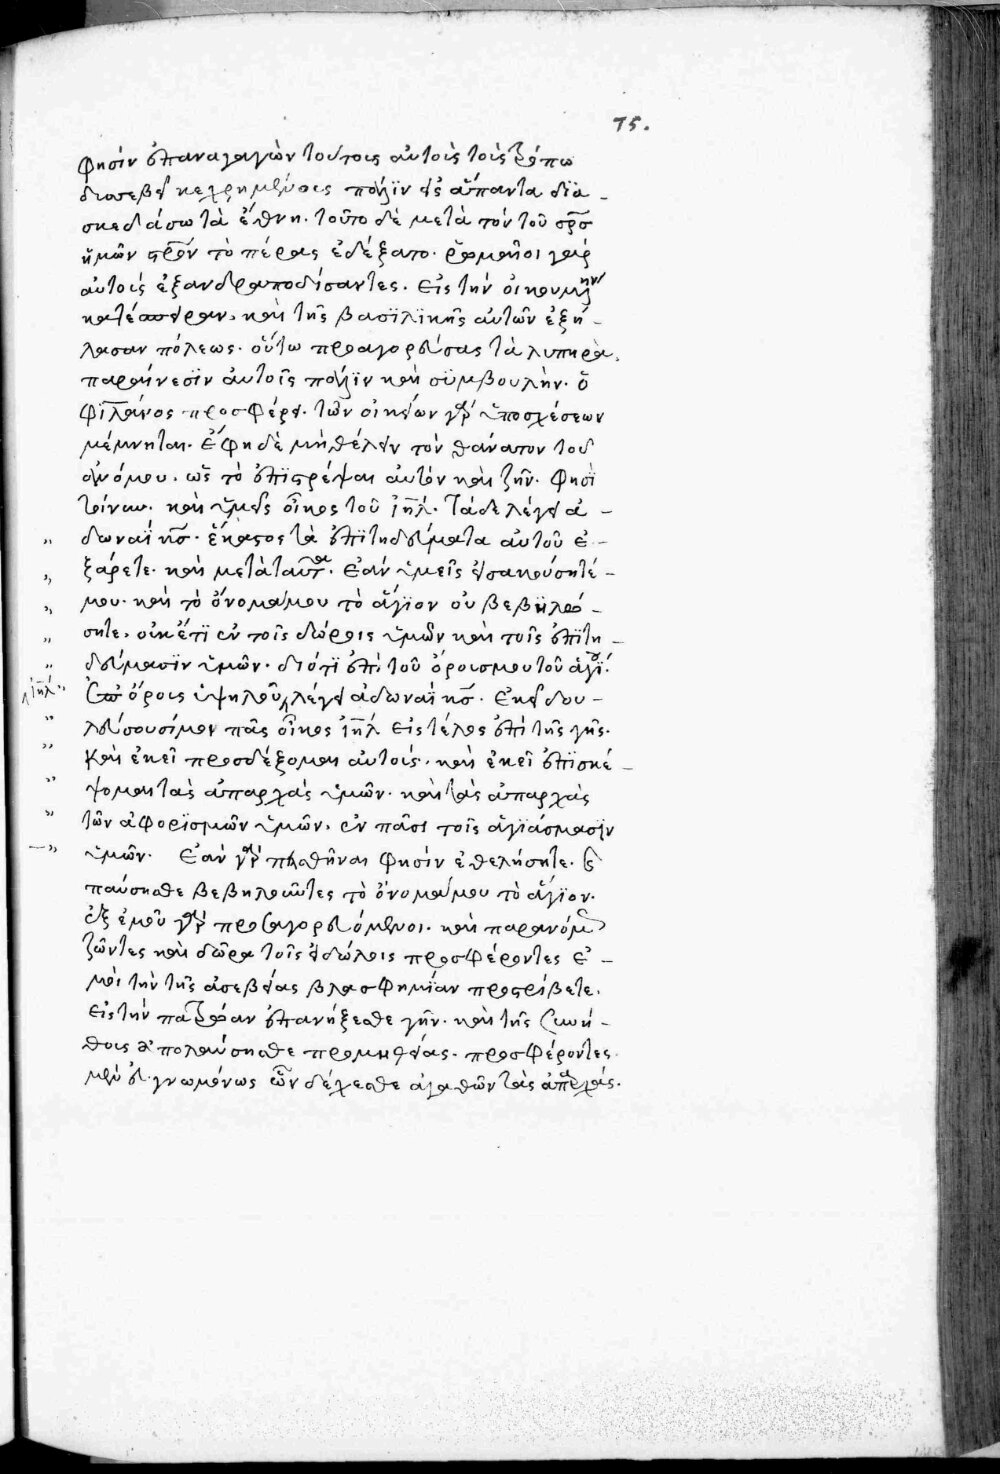 75.
φησὶν ἐπαναγαγὼν τούτοις αὐτοῖς τοῖς τρόπω
δυσσεβεῖ κεχρημένοις πάλϊν εἰς ἅπαντα δϊα -
σκεδάσω τὰ ἔθνη. τοῦτο δὲ μετὰ τὸν τοῦ σρσ
ἡμῶν σρον τὸ πέρας ἐδέξατο. ῥωμαῖοι γὰρ
αὐτοὺς ἐξανδραποδίσαντες. εἰς τὴν οἰκουμένην
κατέσπειραν. καὶ τῆς βασϊλϊκῆς αὐτῶν ἐξή -
λασαν πόλεως. οὕτω προαγορεύσας τὰ λυπηρὰ.
παραίνεσϊν αὐτοῖς πάλϊν καὶ σϋμβουλὴν. ὁ
φϊλανος προσφέρει. τῶν οἰκείων γὰρ ὑποσχέσεων
μέμνηται. ἔφη δὲ μὴ θέλειν τὸν θάνατον τοῦ
ἀνόμου. ὡς τὸ ἐπϊστρέψαι αὐτὸν καὶ ζῆν. φησὶ
τοίνυν. καὶ ὑμεῖς οἶκος τοῦ ιηλ. τάδε λέγει α -
δωναϊ κς. ἕκαστος τὰ ἐπϊτηδεύματα αὐτοῦ ἐ -
ξάρετε. καὶ μετὰ ταῦτα. ἐὰν ὑμεῖς εἰσακούσητέ -
μου. καὶ τὸ ὄνομά μου τὸ ἅγϊον οὐ βεβηλώ -
σητε. οὐκέτϊ ἐν τοῖς δώροις ὑμῶν καὶ τοῖς ἐπϊτη -
δεύμασϊν ὑμῶν. διότϊ ἐπὶ τοῦ ὄρους μου τοῦ ἁγϊου.
ἐπ ὄρους ὑψηλοῦ λέγει ἀδωναϊ κς. ἐκεῖ δου -
ιηλ
λεύσουσί μοι πᾶς οἶκος ιηλ εἰς τέλος ἐπὶ τῆς γῆς.
καὶ ἐκεῖ προσδέξομαι αὐτοὺς. καὶ ἐκεῖ ἐπϊσκέ -
ψομαι τὰς ἀπαρχὰς ὑμῶν. καὶ τὰς ἀπαρχὰς
τῶν ἀφορϊσμῶν ὑμῶν. ἐν πᾶσι τοῖς ἁγϊάσμασϊν
ὑμῶν. ἐὰν γὰρ φησὶν ἐθελήσητε.
παύσησθε βεβηλοῦντες τὸ ὄνομά μου τὸ ἅγϊον.
ἐξ ἐμοῦ γὰρ προσαγορευόμενοι. καὶ παρανομ
ζῶντες καὶ δῶρα τοῖς εἰδώλοις προσφέροντες ἐ -
μοὶ τὴν τῆς ἀσεβείας βλασφημίαν προστρίβετε.
εἰς τὴν πατρώαν ἐπανήξεσθε γῆν. καὶ τῆς συνή -
θους ἀπολαύσησθε προμηθείας. προσφέροντες
μὲν εὐγνωμόνως ὧν δέχεσθε ἀγαθῶν τὰς ἀπαρχάς.